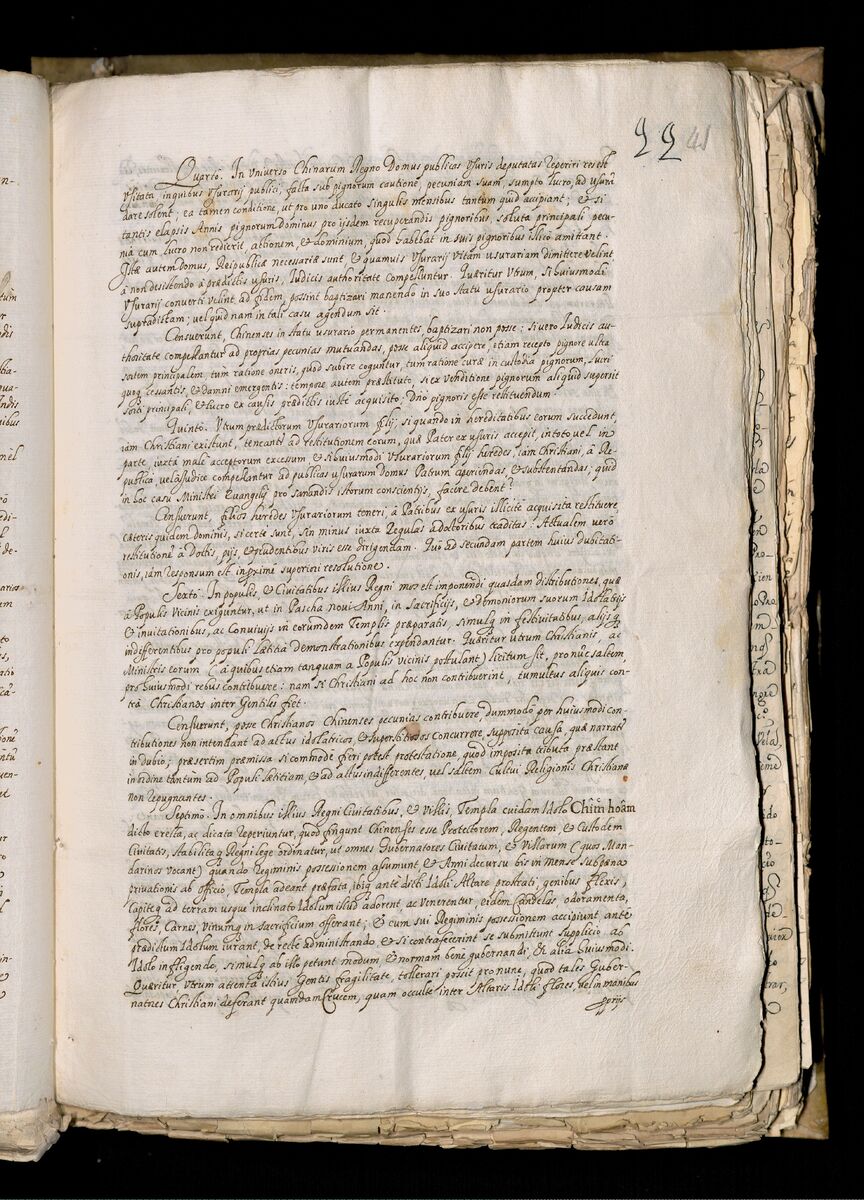 22 41
Quarto. In Vniverso Chinarum Regno Domus publicas vsuris deputatas Reperiri res est
vsitata, in quibus vsurarij publici, facta sub pignorum cautione, pecuniam suam, sumpto lucro, ad vsurã
dare solent; ea tamen conditione, ut pro uno ducato singulis mensibus tantum quid accipiant; & si
tantis elapsis Annis pignorum Dominus pro ijsdem recuperandis pignoribus, soluta principali pecu-
nia cum lucro non redierit, actionem, & dominium, quod habebat in suis pignoribus illicò amittant.
Istæ autem Domus, Reipublicæ necessariæ sunt, & quamuis vsurarij vitam usurariam dimittere velint
à non desistendo à prædictis usuris, Iudicis authoritate compelluntur. Quæritur vtrum, si huiusmodi
vsurarij converti velint ad fidem, possint baptizari manendo in suo statu vsurario propter causam
supradictam; vel quid nam in tali casu agendum sit.
Censuerunt, Chinenses in statu usurario permanentes, baptizari non posse: si vero Iudicis au-
thoritate compellantur ad proprias pecunias mutuandas, posse aliquid accipere, etiam recepto pignore ultra
sortem principalem, tum ratione oneris, quod subire coguntur, tum ratione curæ in custodia pignorum, lucri
quoq cessantis, & damni emergentis: tempore autem præstituto, si ex venditione pignorum aliquid supersit
sorti principali, & lucro ex causis prædictis iuste acquisito; Dño pignoris esse restituendum.
Quinto. Vtrum prædictorum vsurariorum filij, si quando in hæreditatibus eorum succedunt,
iam Christiani existunt, teneantr ad restitutionem eorum, quæ Pater ex usuris accepit, in toto vel in
parte, iuxtà malè acceptorum excessum & si huiusmodi vsurariorum filij heredes, iam Christiani, à Re-
publica, vel à Iudice compellantur ad publicas usurarum domus Patrum aperiendas, & substentandas; quid
in hoc casu Ministri Euangelij pro sanandis istorum conscientijs, facere debent?
Censuerunt, filios heredes vsurariorum teneri, à Patribus ex usuris illicitè acquisita restituere,
cæteris quidem dominis, si certe sunt, sin minus iuxta Regulas à doctoribus traditas: Actualem verò
restitutionẽ à Doctis, pijs, & prudentibus viris esse dirigendam. Quò ad secundam partem huius dubitati-
onis, iam responsum est in proximè superiori resolutione.
Sexto. In populis, & Civitatibus illius Regni mos est imponendi quasdam distributiones, quæ
à Populis vicinis exiguntur, ut in Pascha noui Anni, in sacrificijs, & Dæmoniorum suorum Idolatrijs
& inuitationibus, ac Convivijs in eorumdem Templis præparatis, simulq in festivitatibus, alijsq
indifferentibus pro populi Lætitia demonstrationibus expendantur. Quæritur utrum Christianis, ac
Ministris eorum (à quibus etiam tanquam à Populis vicinis postulant) licitum sit, pro nuc saltem,
pro huiusmodi rebus contribuere: nam si Christiani ad hoc non contribuerint, tumultus aliquis con-
trà Christianos inter Gentiles fiet.
Censuerunt, posse Christianos Chinenses pecunias contribuere dummodò per huiusmodi con-
tributiones non intendant ad actus idolatricos, & superstitiosos concurrere, supposita causa, quæ narratr
in dubio; præsertim præmissa si commodè fieri potest protestatione, quod imposita tributa præstant
in ordine tantùm ad Populi lætitiam, & ad actus indifferentes, vel saltem Cultui Religionis Christianæ
non repugnantes.
Septimò. In omnibus illius Regni Civitatibus, & villis, Templa cuidam Idolo Chim hoam
dicto erecta, ac dicata reperiuntur, quod fingunt Chinenses esse Protectorem, Regentem, & Custodem
Civitatis, stabilitaq Regni lege ordinatur, ut omnes Gubernatores Civitatum, & Villarum (quos Man-
darinos vocant) quando Regiminis possessionem assumunt, & Anni decursu bis in mense sub pœna
privationis ab officio, Templa adeant præfata, ibiq ante dicti Idoli Altare prostrati, genibus flexis,
capiteq ad terram usque inclinato Idolum istud adorent, ac venerentur, eidem Candelas, odoramenta,
flores, Carnes, vinumq in sacrificium offerant; & cum sui Regiminis possessionem accipiunt ante
prædictum Idolum iurant, de recte administrando, & si contrafecerint se submittunt supplicio, ab
Idolo infligendo, simulq ab illo petunt modum, & normam bene gubernandi, & alia huiusmodi.
Quæritur, vtrum attenta istius Gentis fragilitate, tollerari possit pro nunc, quod tales Guber-
natores Christiani deferant quamdam Crucem, quam occulte inter Altaris Idoli flores, vel in manibus
pprijs